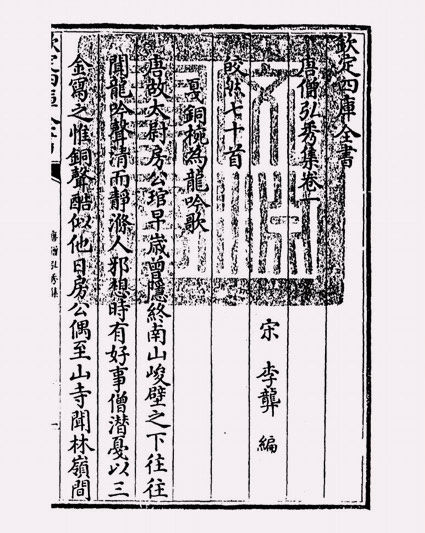 欽定四庫全書
唐僧弘秀集卷一
宋 李龏 編
皎然七十首
戛銅椀為龍吟歌
唐故太尉房公琯早歲曾隱終南山峻壁之下往往
聞龍吟聲清而靜滌人邪想時有好事僧潛戛以三
金寫之惟銅聲酷似他日房公偶至山寺聞林嶺間
唐僧弘秀集